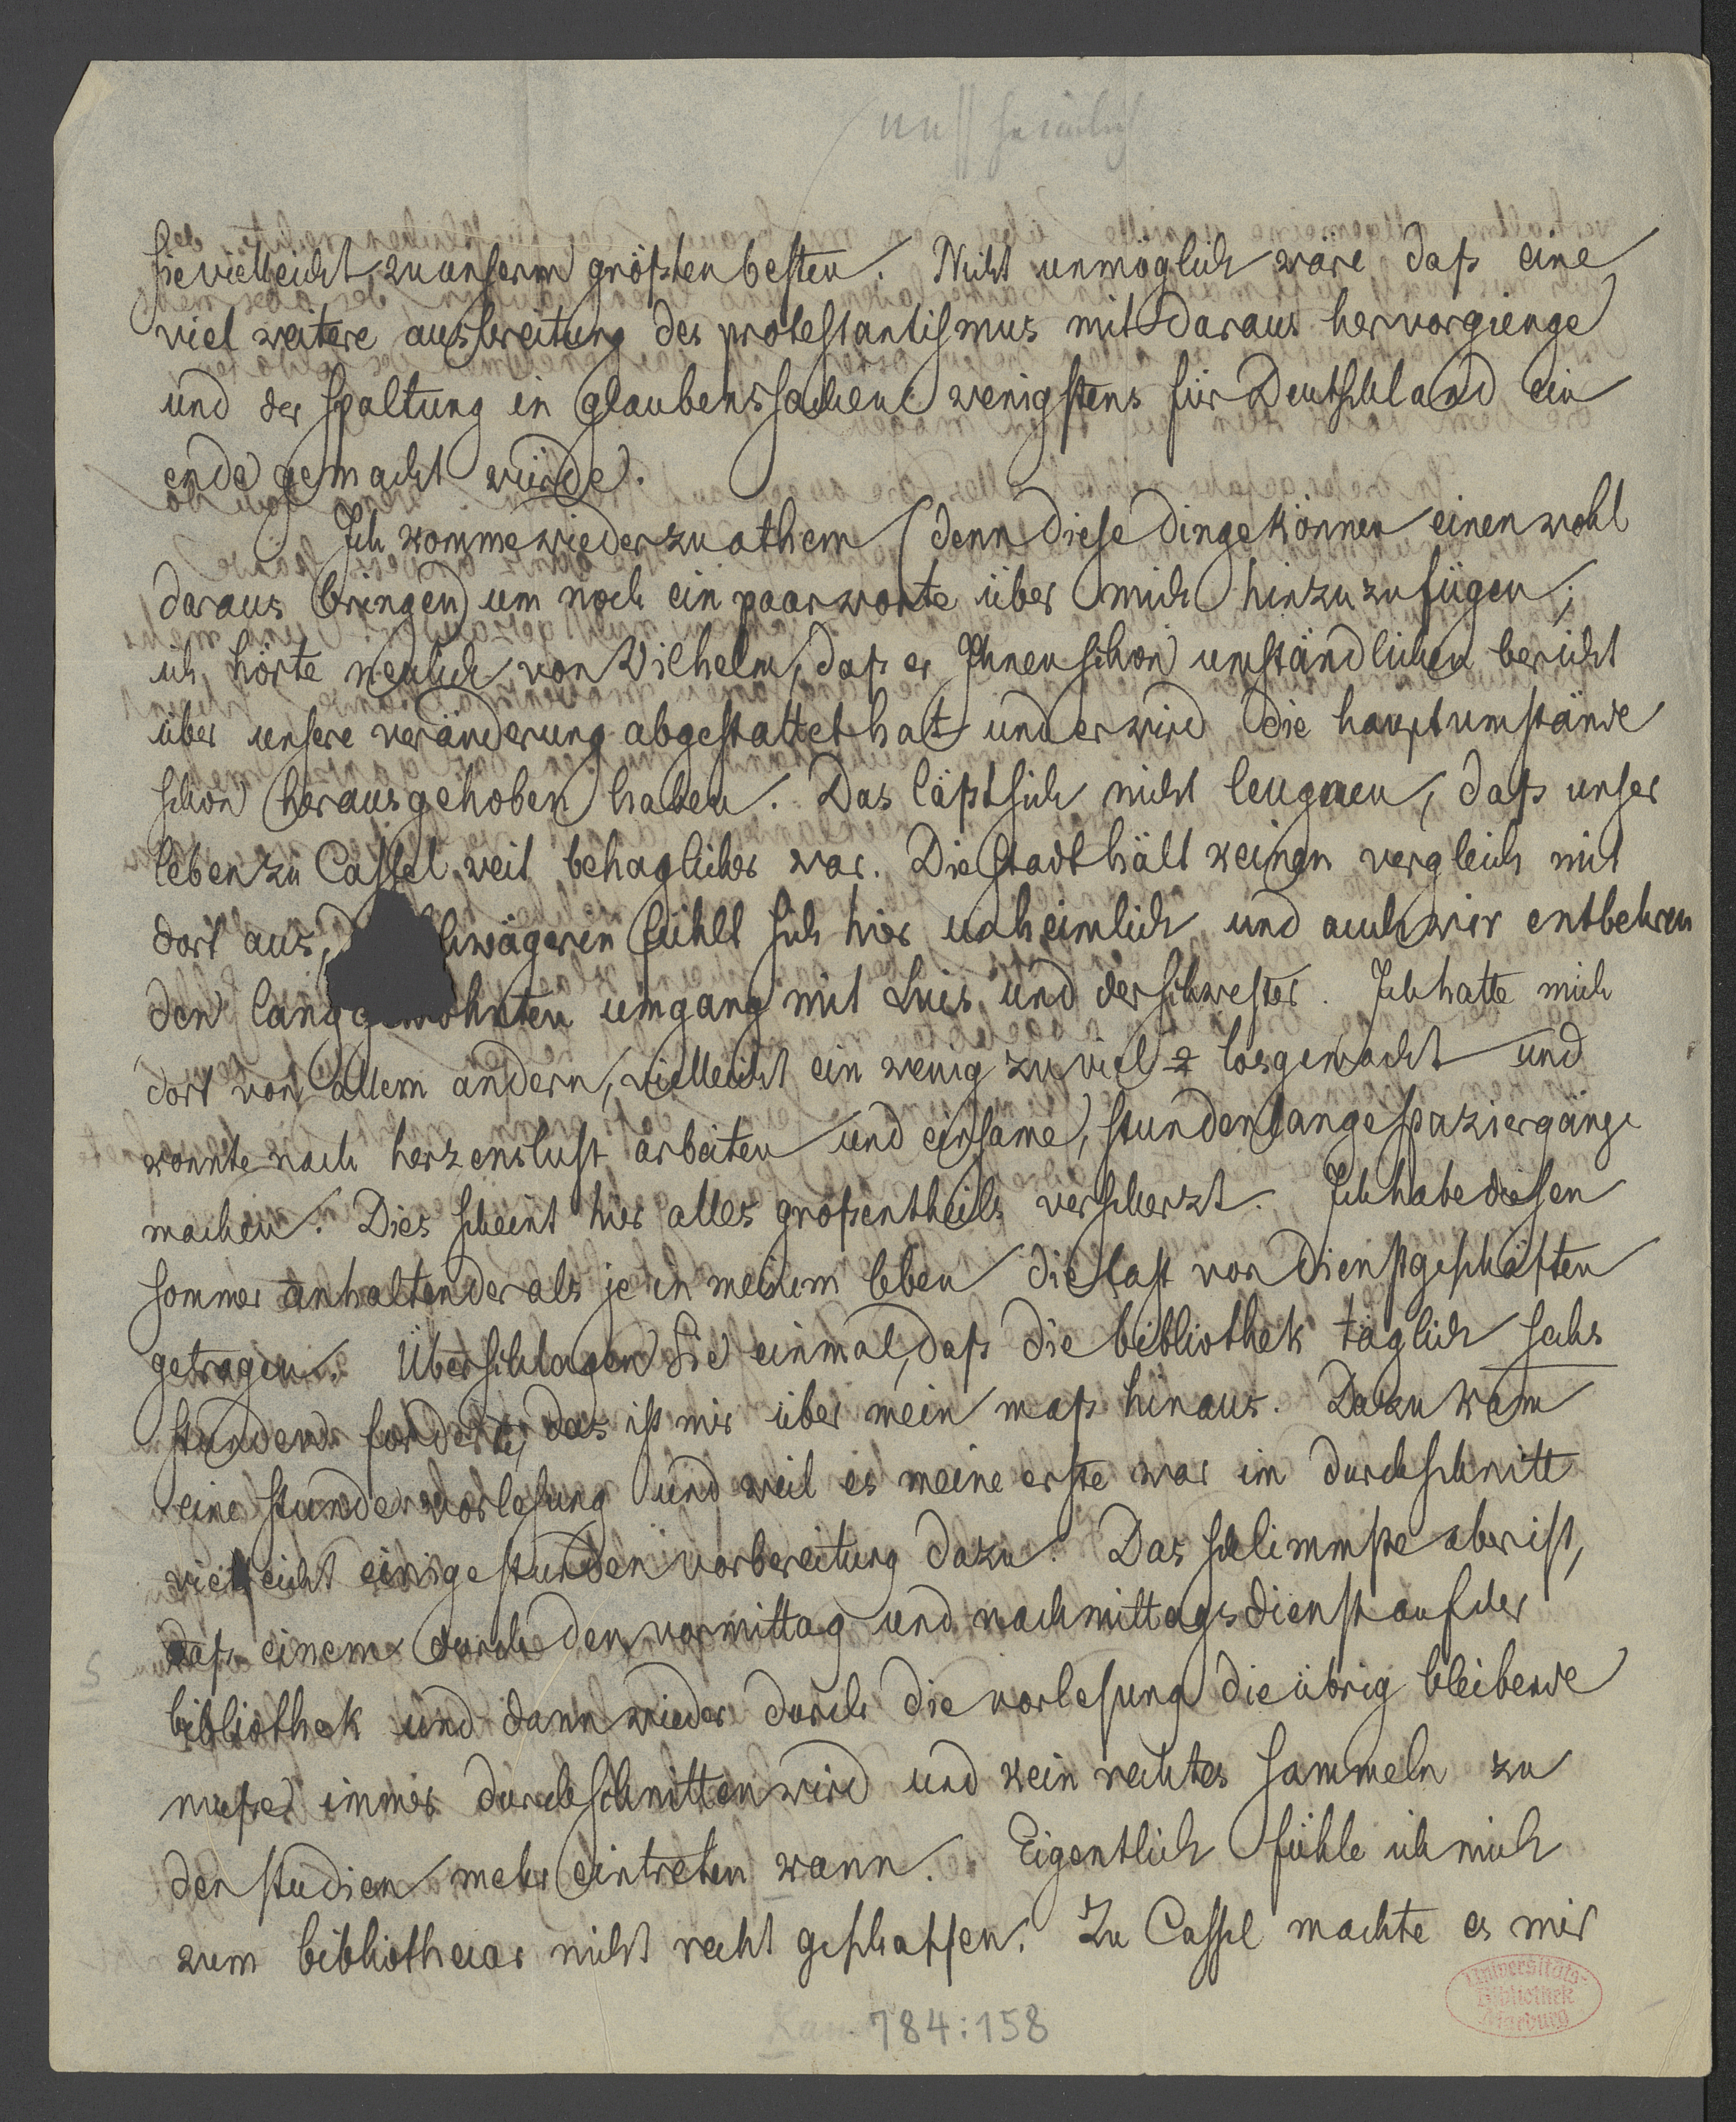 sie vielleicht, zu unserm größten besten. Nicht unmöglich wäre, daß eine
viel weitere ausbreitung des protestantismus mit daraus hervorgienge
und der spaltung in glaubenssachen wenigstens für Deutschland ein
ende gemacht würde.
Ich komme wieder zu athem (denn diese dinge können einen wohl
daraus bringen) um noch ein paar worte über mich hinzuzufügen;
ich hörte neulich von Wilhelm, daß er Ihnen schon umständlichen bericht
über unsere veränderung abgestattet hat und er wird die hauptumstände
schon herausgehoben haben. Das läßt sich nicht leugnen, daß unser
leben zu Cassel weit behaglicher war. Die stadt hält keinen vergleich mit
dort aus, hwägerin fühlt sich hier unheimlich und auch wir entbehren
den langgewohnten umgang mit Luis und der schwester. Ich hatte mich
dort von allem andern, vielleicht ein wenig zu viel losgemacht und
konnte nach herzenslust arbeiten und einsame, stundenlange spaziergänge
machen. Dies scheint hier alles großentheils verscherzt. Ich habe diesen
sommer anhaltender als je in meinem leben die last von dienstgeschäften
getragen. Überschlagen Sie einmal, daß die bibliothek täglich sechs
stunden fordert, das ist mir über mein maß hinaus. Dazu kam
eine stunde vorlesung und weil es meine erste war im durchschnitt
vielleicht einige stunden vorbereitung dazu. Das schlimmste aber ist,
daß einem durch den vormittag und nachmittagsdienst auf der
bibliothek und dann wieder durch die vorlesung die übrig bleibende
muße immer durchschnitten wird und kein rechtes sammeln zu
den studien mehr eintreten kann. Eigentlich fühle ich mich
zum bibliothecar nicht recht geschaffen. Zu Cassel machte es mir
Universitäts-
Bibliothek
Marburg
784:158